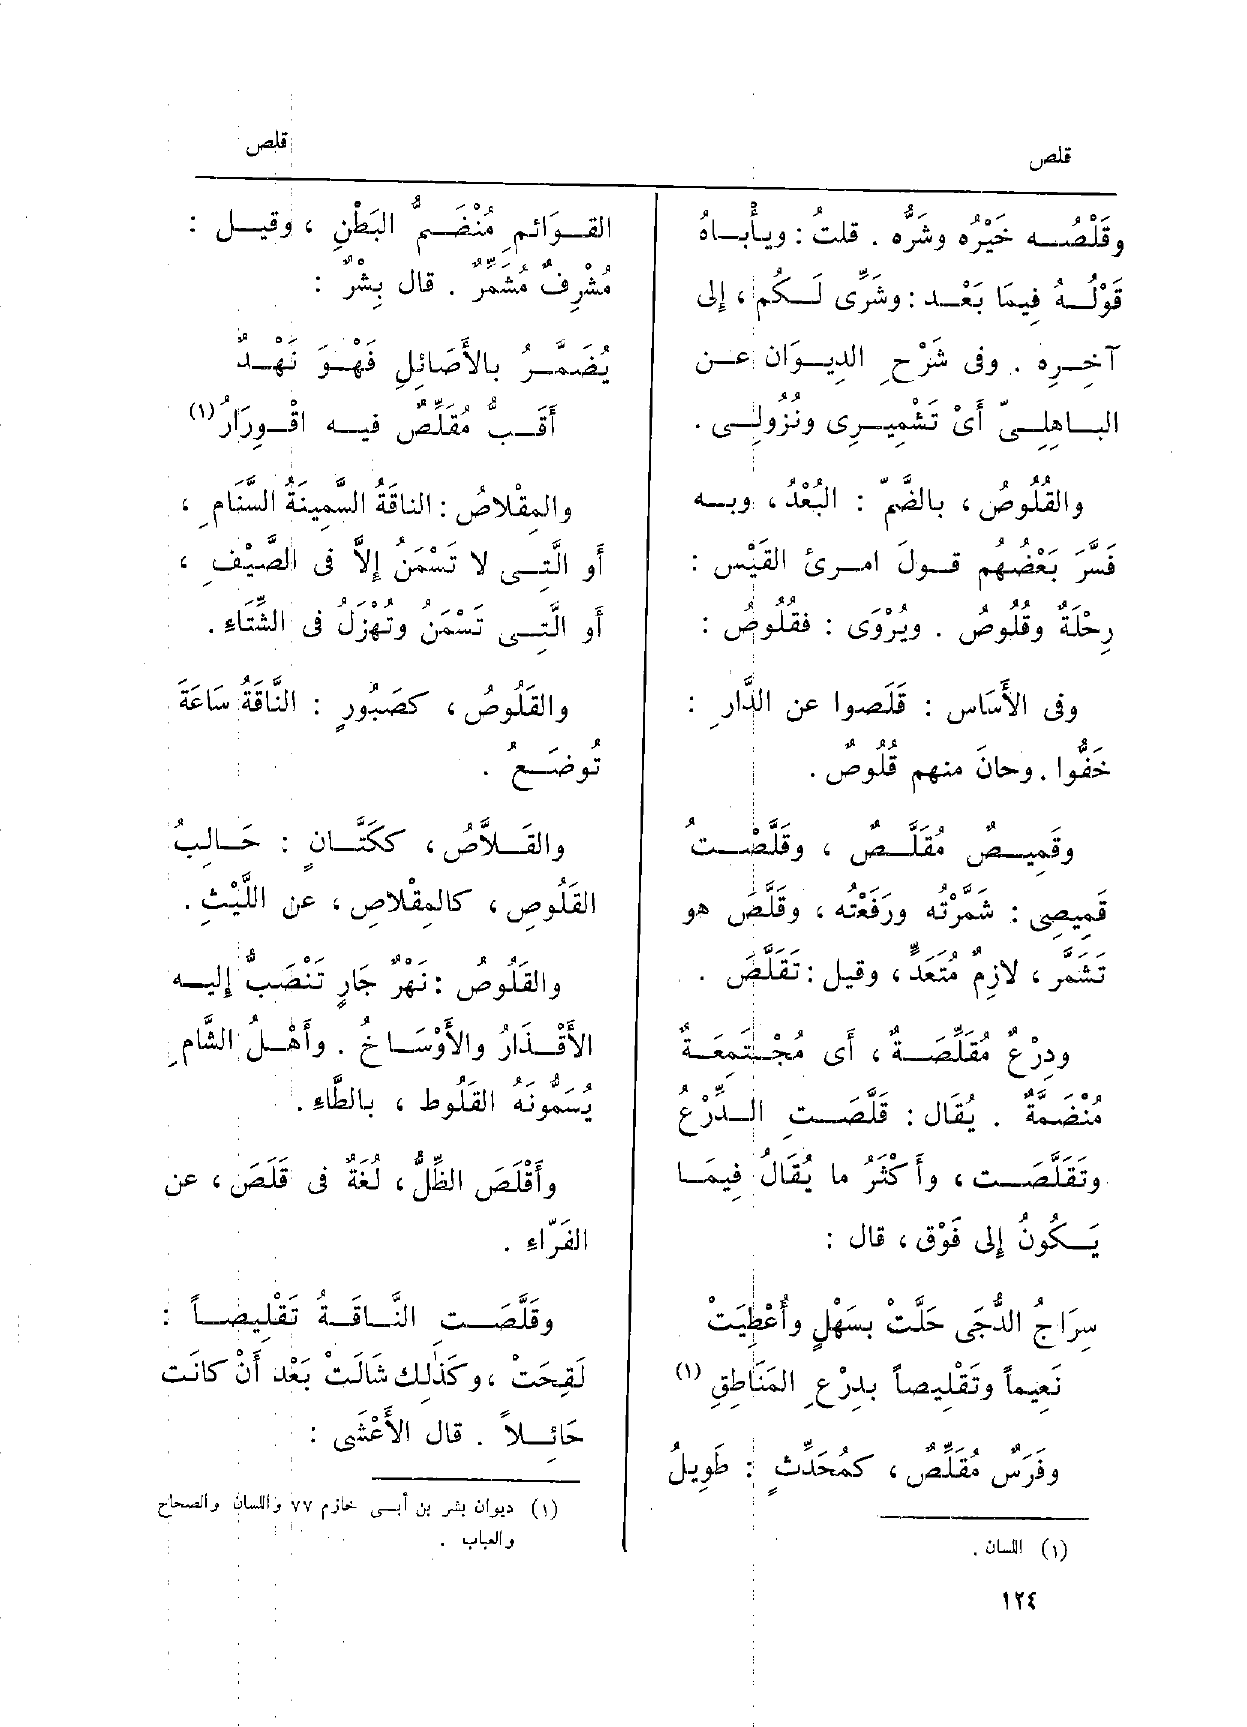 قلص
قلص
وقَلْصُه خَيْرُه وشَرُّه . قلتُ : ويأْباهُ
قَوْلُهُ فيمَا بَعْد : وشَرِّى لَكُم ، إِلى
آخِرِه . وفى شَرْحِ الدِيوَان عن
الباهِلِىّ أَىْ تَشْمِيرِى ونُزُولِى .
والقُلُوصُ ، بالضَّمّ : البُعْدُ ، وبه
فَسَّرَ بَعْضُهم قولَ امرئ القَيْس :
رِحْلَةٌ وقُلُوصُ . ويُرْوَى : فقُلُوصُ :
وفى الأَسَاس : قَلَصُوا عن الدَّارِ :
خَفُّوا . وحَانَ منهم قُلُوصٌ .
وقَمِيصٌ مُقَلَّصٌ ، وقَلَّصْتُ
قَمِيصِى : شَمَّرْتُه ورَفَعْتُه ، وقَلَّصَ هو
تَشَمَّر ، لازِمٌ مُتَعَدٍّ ، وقيل : تَقَلَّصَ .
ودِرْعٌ مُقَلِّصَةٌ ، أَى مُجْتَمِعَةٌ
مُنْضَمَّةٌ . يُقَال : قَلَّصَتِ الدِّرْعُ
وتَقَلَّصَت ، وأَكْثَرُ ما يُقَالُ فِيمَا
يَكُونُ إِلى فَوْق ، قال :
سِرَاجُ الدُّجَى حَلَّتْ بسَهْلٍ وأُعْطِيَتْ
نَعِيماً وتَقْلِيصاً بدِرْعِ المَنَاطِقِ (١)
وفَرَسٌ مُقَلِّصٌ ، كمُحَدِّثٍ : طَوِيلُ
(١) اللسان .
القَوَائمِ مُنْضَمُّ البَطْنِ ، وقيل :
مُشْرِفٌ مُشَمِّرٌ . قال بِشْرٌ :
يُضَمَّرُ بالأَصَائلِ فَهْوَ نَهْدٌ
أَقَبُّ مُقَلِّصٌ فيه اقْوِرَارُ (١)
والمِقْلاصُ : الناقَةُ السَّمِينَةُ السَّنامِ ،
أَو الَّتى لا تَسْمَنُ إِلاَّ فى الصَّيْفِ ،
أَو الَّتى تَسْمَنُ وتُهْزَلُ فى الشِّتَاءِ .
والقَلُوصُ ، كصَبُورٍ : النَّاقَةُ سَاعَةَ
تُوضَعُ .
والقَلاَّصُ ، ككَتَّانٍ : حَالِبُ
القَلُوصِ ، كالمِقْلاصِ ، عن اللَّيْثِ .
والقَلُوصُ : نَهْرٌ جَارٍ تَنْصَبُّ إِليه
الأَقْذَارُ والأَوْسَاخُ . وأَهْلُ الشَّامِ
يُسَمُّونَهُ القَلُوط ، بالطَّاءِ .
وأَقْلَصَ الظِّلُّ ، لُغَةٌ فى قَلَصَ ، عن
الفَرّاءِ .
وقَلَّصَت النَّاقَةُ تَقْلِيصاً :
لَقِحَتْ ، وكَذٰلِك شَالَتْ بَعْد أَنْ كانَت
حَائِلاً . قال الأَعْشَى :
(١) ديوان بشر بن أبى خازم ٧٧ واللسان والصحاح
والعباب .
١٢٤